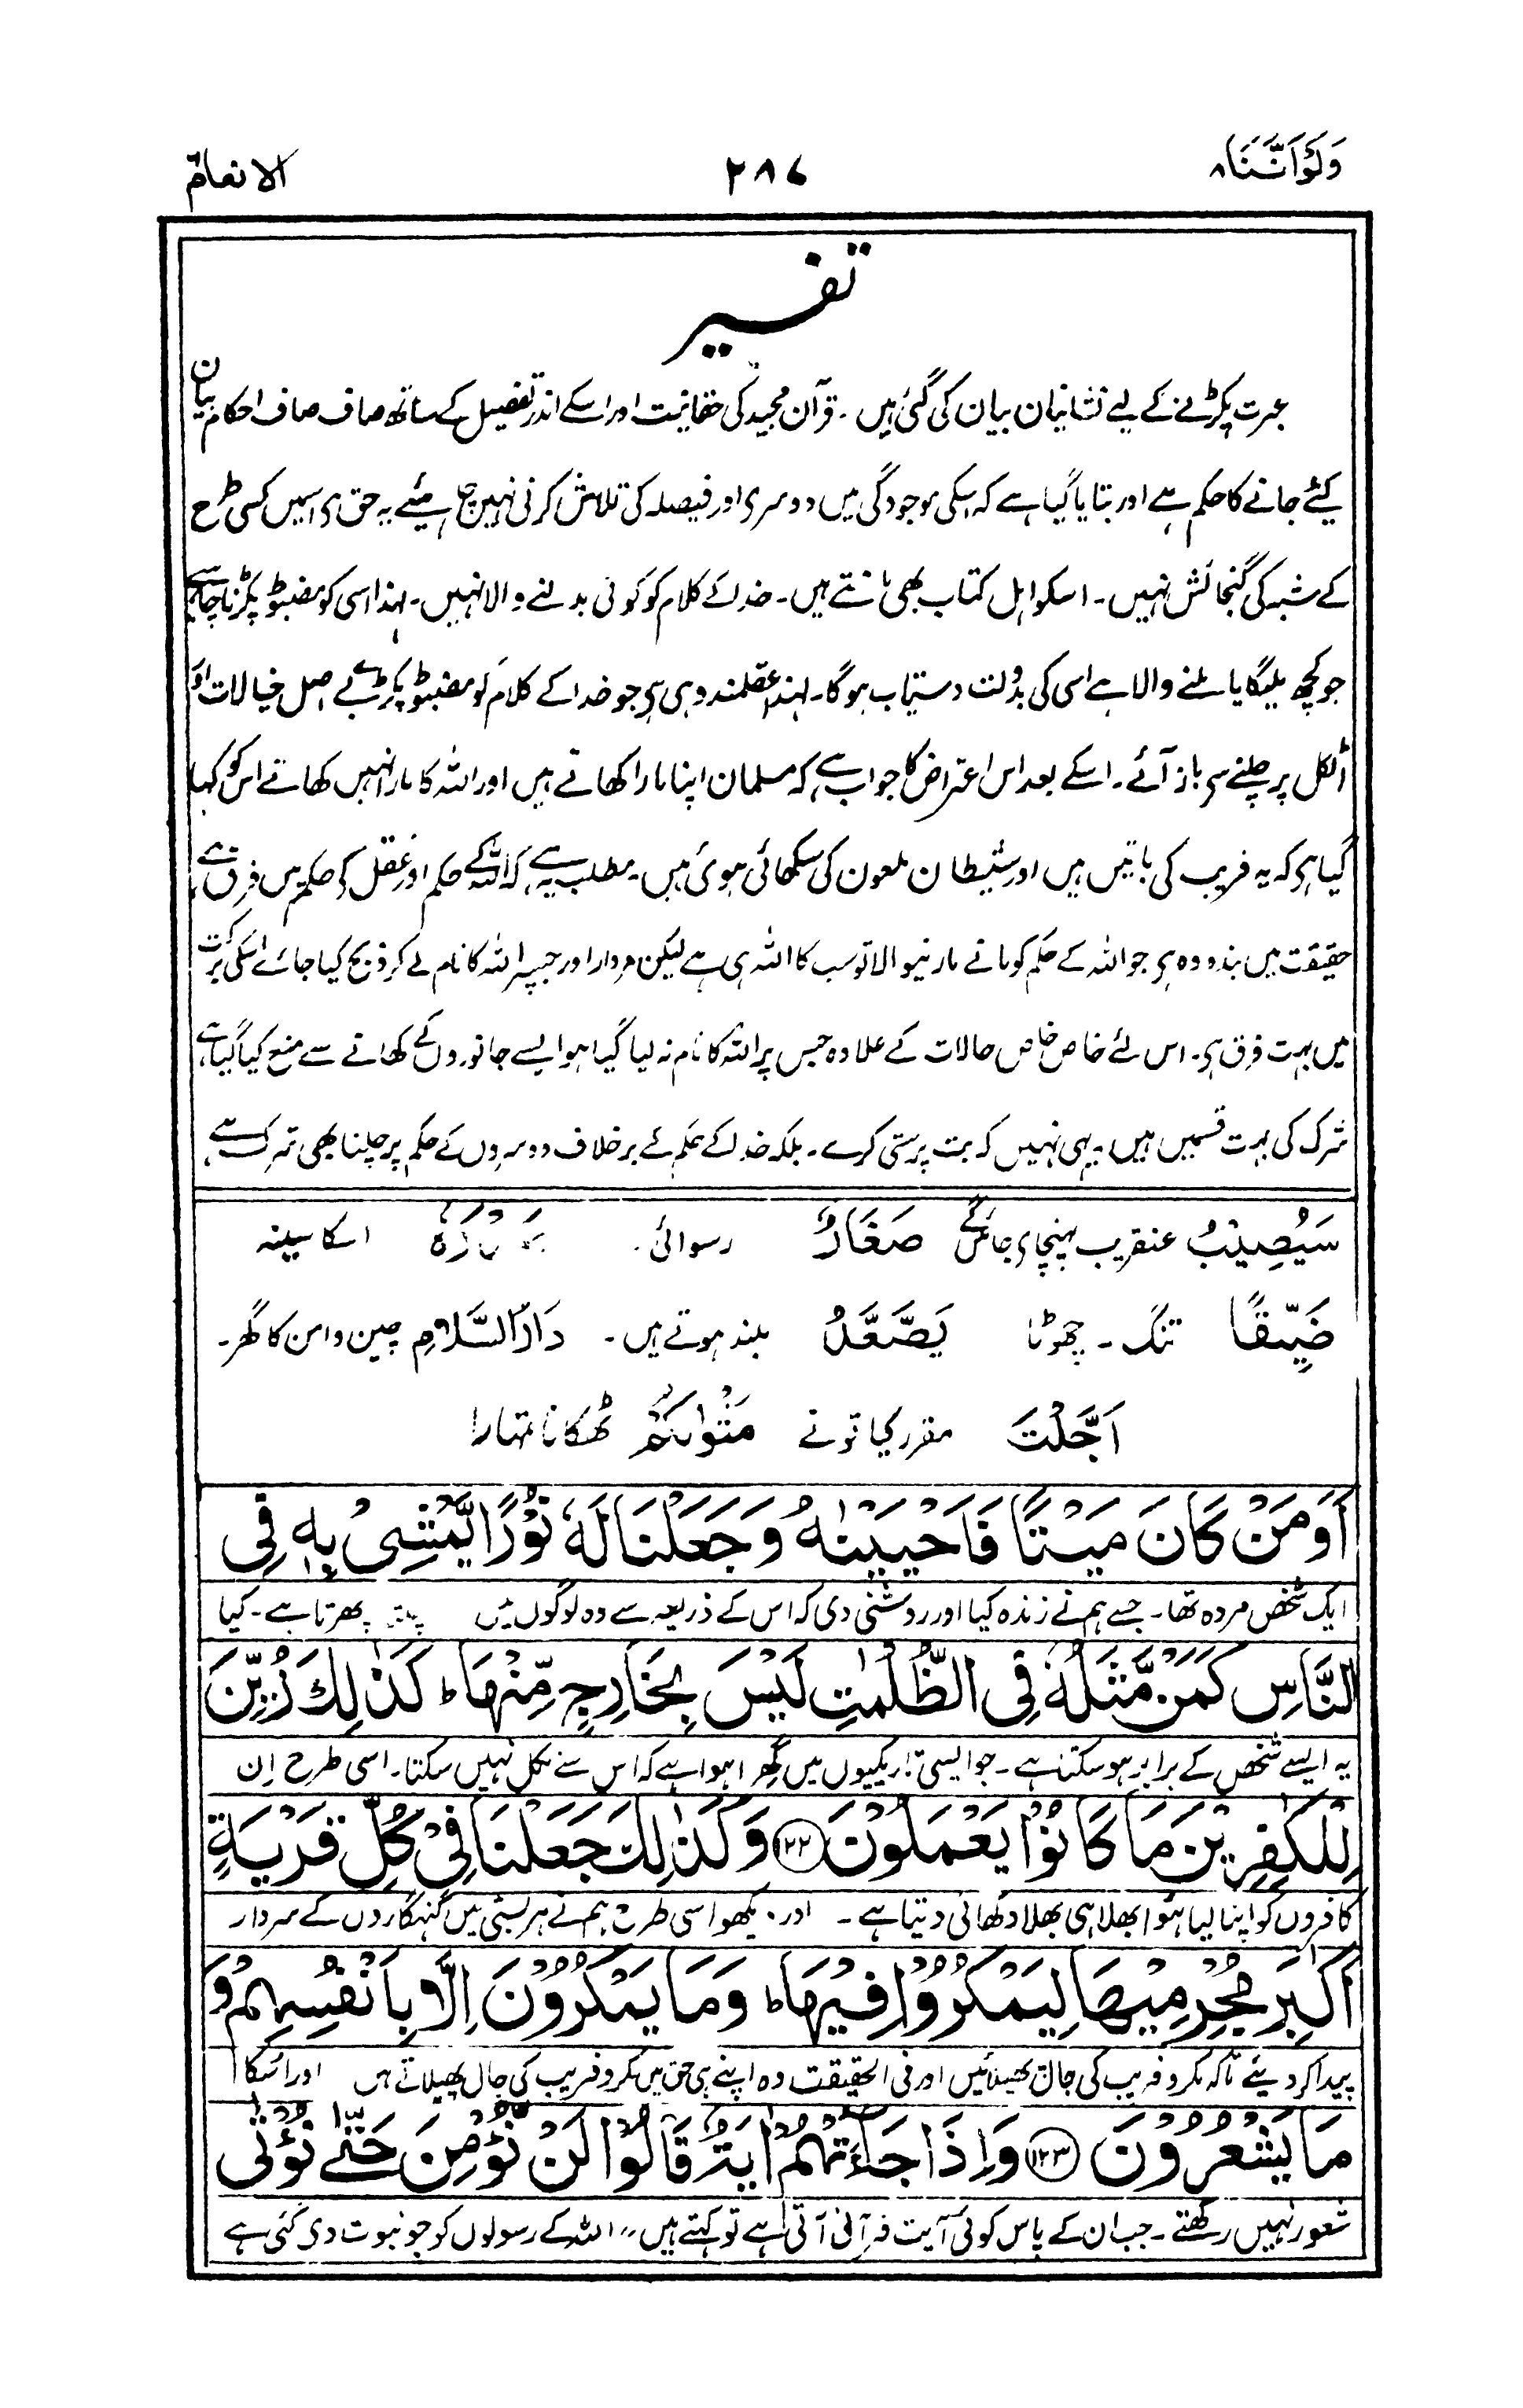 وَلَوْ اَنَّنَا ۸
۲۸۷
الانعام ۶
تفسیر
عبرت پکڑنے کے لیے نشانیاں بیان کی گئی ہیں۔ قرآن مجید کی حقانیت اور اسکے اندر تفصیل کے ساتھ صاف صاف احکام بیان
کیٔے جانے کا حکم ہے اور بتایا گیا ہے کہ اسکی موجودگی میں دوسری اور فیصلہ کی تلاش کرنی نہیں چاہیٔے یہ حق ہی اسمیں کسی طرح
کے شبہ کی گنجائش نہیں۔ اسکو اہل کتاب بھی مانتے ہیں۔ خدا کے کلام کو کوئی بدلنے والا نہیں۔ لہٰذا اسی کو مضبوط پکڑنا چاہیے
جو کچھ ملیگا یا ملنے والا ہے اسی کی بدولت دستیاب ہوگا۔ لہٰذا عقلمند وہی ہی جو خدا کے کلام کو مضبوط پکڑے بے اصل خیالات اور
اٹکل پر چلنے سی باز آئے۔ اسکے بعد اس اعتراض کا جواب ہے کہ مسلمان اپنا مارا کھاتے ہیں اور اللہ کا مارا نہیں کھاتے اس کو کہا
گیا ہی کہ یہ فریب کی باتیں ہیں اور شیطان ملعون کی سکھائی ہوئی ہیں۔ مطلب یہ ہے کہ اللہ کے حکم اور عقل کی حکم میں فرق ہے،
حقیقت میں بندہ وہ ہی جو اللہ کے حکم کو مانے مارنیوالا تو سب کا اللہ ہی ہے لیکن مردار اور جسپر اللہ کا نام لے کر ذبح کیا جائے اسکی برکت
میں بہت فرق ہی۔ اس لئے خاص خاص حالات کے علاوہ جس پر اللہ کا نام نہ لیا گیا ہو ایسے جانوروں کے کھانے سے منع کیا گیا ہے،
شرک کی بہت قسمیں ہیں۔ یہی نہیں کہ بت پرستی کرے۔ بلکہ خدا کے حکم کے برخلاف دوسروں کے حکم پر چلنا بھی شرک ہے،
سَيُصِيْبُ عنقریب پہنچائی جائیں گے صَغَارٌ رسوائی۔ اسکا سینہ
ضَيِّقًا تنگ۔ چھوٹا يَصَّعَّدُ بلند ہوتے ہیں۔ دَارُ السَّلَامِ چین و امن کا گھر۔
اَجَّلْتَ مقرر کیا تو نے مَثْوٰىكُمْ ٹھکانا تمہارا
اَوَمَنْ كَانَ مَيْتًا فَاَحْيَيْنٰهُ وَجَعَلْنَا لَهٗ نُوْرًا يَّمْشِىْ بِهٖ فِى
ایک شخص مردہ تھا۔ جسے ہم نے زندہ کیا اور روشنی دی کہ اس کے ذریعہ سے وہ لوگوں میں پھرتا ہے۔ کیا
النَّاسِ كَمَنْ مَّثَلُهٗ فِى الظُّلُمٰتِ لَيْسَ بِخَارِجٍ مِّنْهَا ط كَذٰلِكَ زُيِّنَ
یہ ایسے شخص کے برابر ہو سکتا ہے۔ جو ایسی تاریکیوں میں گھرا ہوا ہے کہ اس سے نکل نہیں سکتا۔ اسی طرح اِن
لِلْكٰفِرِيْنَ مَا كَانُوْا يَعْمَلُوْنَ ۱۲۲ وَكَذٰلِكَ جَعَلْنَا فِىْ كُلِّ قَرْيَةٍ
کافروں کو اپنا کیا ہوا بھلا ہی بھلا دکھائی دیتا ہے۔ اور دیکھو اسی طرح ہم نے ہر بستی میں گنہگاروں کے سردار
اَكٰبِرَ مُجْرِمِيْهَا لِيَمْكُرُوْا فِيْهَا ط وَمَا يَمْكُرُوْنَ اِلَّا بِاَنْفُسِهِمْ وَ
پیدا کر دیئے تاکہ مکر و فریب کی جال پھیلائیں اور فی الحقیقت وہ اپنے ہی حق میں مکر و فریب کی جال پھیلاتے ہیں اور اسکا
مَا يَشْعُرُوْنَ ۱۲۳ وَاِذَا جَآءَتْهُمْ اٰيَةٌ قَالُوْا لَنْ نُّؤْمِنَ حَتّٰى نُؤْتٰى
شعور نہیں رکھتے۔ جب ان کے پاس کوئی آیت قرآنی آتی ہے تو کہتے ہیں " اللہ کے رسولوں کو جو نبوت دی گئی ہے